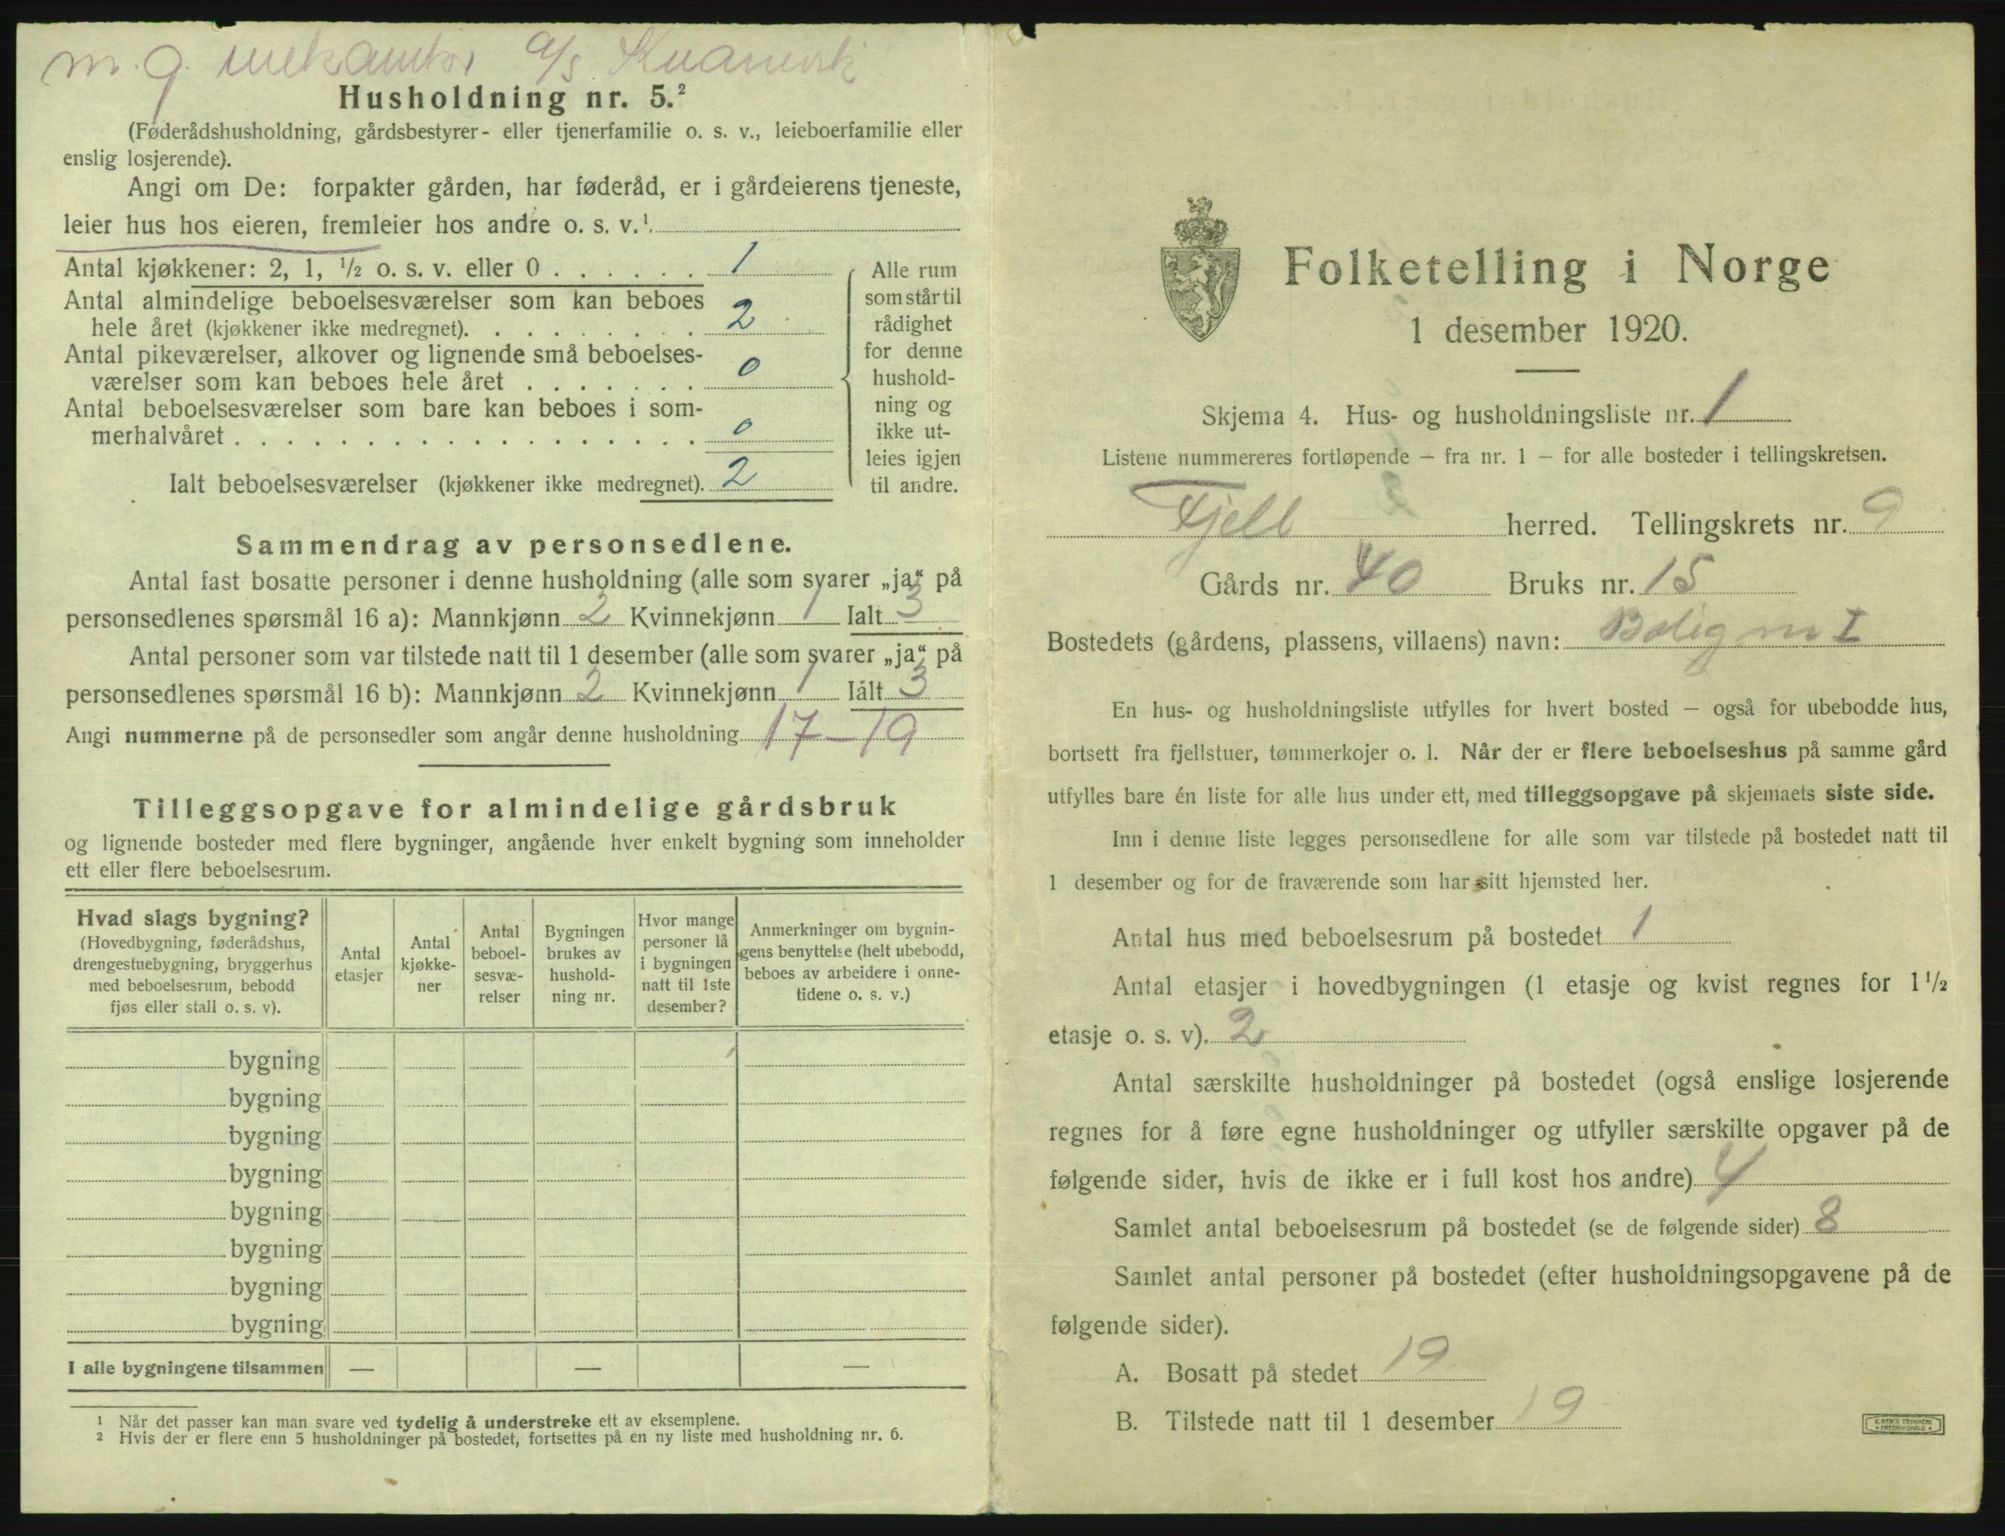 m. 9. mekaniker a/s
Husholdning nr. 5.²
(Føderådshusholdning, gårdsbestyrer- eller tjenerfamilie o. s. v., leieboerfamilie eller
enslig losjerende).
Angi om De: forpakter gården, har føderåd, er i gårdeierens tjeneste,
leier hus hos eieren, fremleier hos andre o. s. v.¹
Antal kjøkkener: 2, 1, ½ o. s. v. eller 0 . . . . . . 1
Antal almindelige beboelsesværelser som kan beboes
hele året (kjøkkener ikke medregnet). . . . . . . . . 2
Antal pikeværelser, alkover og lignende små beboelses-
værelser som kan beboes hele året . . . . . . . 0
Antal beboelsesværelser som bare kan beboes i som-
merhalvåret . . . . . . . . . . . . . . . . . . 0
Ialt beboelsesværelser (kjøkkener ikke medregnet). 2
Alle rum
som står til
rådighet
for denne
hushold-
ning og
ikke ut-
leies igjen
til andre.
Sammendrag av personsedlene.
Antal fast bosatte personer i denne husholdning (alle som svarer „ja“ på
personsedlenes spørsmål 16 a): Mannkjønn 2 Kvinnekjønn 1 Ialt 3
Antal personer som var tilstede natt til 1 desember (alle som svarer „ja“ på
personsedlenes spørsmål 16 b): Mannkjønn 2 Kvinnekjønn 1 Ialt 3
Angi nummerne på de personsedler som angår denne husholdning 17-19
Tilleggsopgave for almindelige gårdsbruk
og lignende bosteder med flere bygninger, angående hver enkelt bygning som inneholder
ett eller flere beboelsesrum.
Hvad slags bygning?
(Hovedbygning, føderådshus,
drengestuebygning, bryggerhus
med beboelsesrum, bebodd
fjøs eller stall o. s. v).
Antal
etasjer
Antal
kjøkke-
ner
Antal
beboel-
sesvæ-
relser
Bygningen
brukes av
hushold-
ning nr.
Hvor mange
personer lå
i bygningen
natt til 1ste
desember?
Anmerkninger om bygnin-
gens benyttelse (helt ubebodd,
beboes av arbeidere i onne-
tidene o. s. v.)
bygning
bygning
bygning
bygning
bygning
bygning
bygning
bygning
I alle bygningene tilsammen — — —
¹ Når det passer kan man svare ved tydelig å understreke ett av eksemplene.
² Hvis der er flere enn 5 husholdninger på bostedet, fortsettes på en ny liste med husholdning nr. 6.
Folketelling i Norge
1 desember 1920.
Skjema 4. Hus- og husholdningsliste nr. 1
Listene nummereres fortløpende – fra nr. 1 – for alle bosteder i tellingskretsen.
Fjell herred. Tellingskrets nr. 9
Gårds nr. 40 Bruks nr. 15
Bostedets (gårdens, plassens, villaens) navn: Bolig nr I
En hus- og husholdningsliste utfylles for hvert bosted – også for ubebodde hus,
bortsett fra fjellstuer, tømmerkojer o. l. Når der er flere beboelseshus på samme gård
utfylles bare én liste for alle hus under ett, med tilleggsopgave på skjemaets siste side.
Inn i denne liste legges personsedlene for alle som var tilstede på bostedet natt til
1 desember og for de fraværende som har sitt hjemsted her.
Antal hus med beboelsesrum på bostedet 1
Antal etasjer i hovedbygningen (1 etasje og kvist regnes for 1½
etasje o. s. v). 2
Antal særskilte husholdninger på bostedet (også enslige losjerende
regnes for å føre egne husholdninger og utfyller særskilte opgaver på de
følgende sider, hvis de ikke er i full kost hos andre) 4
Samlet antal beboelsesrum på bostedet (se de følgende sider) 8
Samlet antal personer på bostedet (efter husholdningsopgavene på de
følgende sider).
A. Bosatt på stedet 19
B. Tilstede natt til 1 desember 19